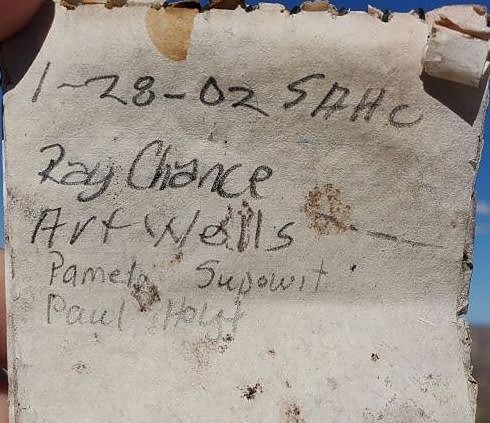 1-28-02 SAHC
Ray Chance
Art Wells
Pamela Supowit
Paul